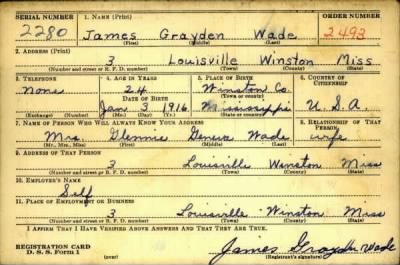 SERIAL NUMBER 1. NAME (Print) ORDER NUMBER
2280 James Grayden Wade 2493
(First) (Middle) (Last)
2. ADDRESS (Print)
3 Louisville Winston Miss
(Number and street or R. F. D. number) (Town) (County) (State)
3. TELEPHONE 4. AGE IN YEARS 5. PLACE OF BIRTH 6. COUNTRY OF CITIZENSHIP
None 24 Winston Co.
DATE OF BIRTH (Town or county)
Jan 3 1916 Mississippi U.S.A.
(Exchange) (Number) (Mo.) (Day) (Yr.) (State or country)
7. NAME OF PERSON WHO WILL ALWAYS KNOW YOUR ADDRESS 8. RELATIONSHIP OF THAT PERSON
Mrs. Glennie Wade wife
(Mr., Mrs., Miss) (First) (Middle) (Last)
9. ADDRESS OF THAT PERSON
3 Louisville Winston Miss
(Number and street or R. F. D. number) (Town) (County) (State)
10. EMPLOYER'S NAME
Self
11. PLACE OF EMPLOYMENT OR BUSINESS
3 Louisville Winston Miss
(Number and street or R. F. D. number) (Town) (County) (State)
I AFFIRM THAT I HAVE VERIFIED ABOVE ANSWERS AND THAT THEY ARE TRUE.
REGISTRATION CARD James Grayden Wade
D. S. S. Form 1 (over) (Registrant's signature)